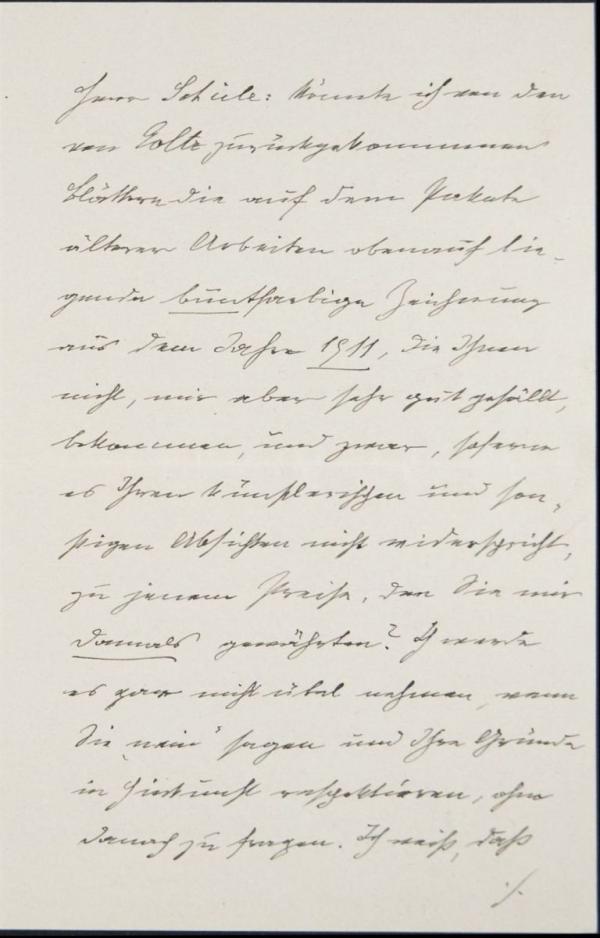 Herr Schiele: Könnte ich von den
von Goltz zurückgekommenen
Blättern die auf dem Pakete
älterer Arbeiten obenauf lie-
gende buntfarbige Zeichnung
aus dem Jahre 1911, die Ihnen
nicht, mir aber sehr gut gefällt,
bekommen, und zwar, soferne
es Ihren künstlerischen und son-
stigen Absichten nicht widerspricht,
zu jenem Preise, den Sie mir
damals gewährten? Ich werde
es gar nicht übel nehmen, wenn
Sie „nein“ sagen und Ihre Gründe
in Hinkunft respektieren, ohne
danach zu fragen. Ich weiß, daß
./.